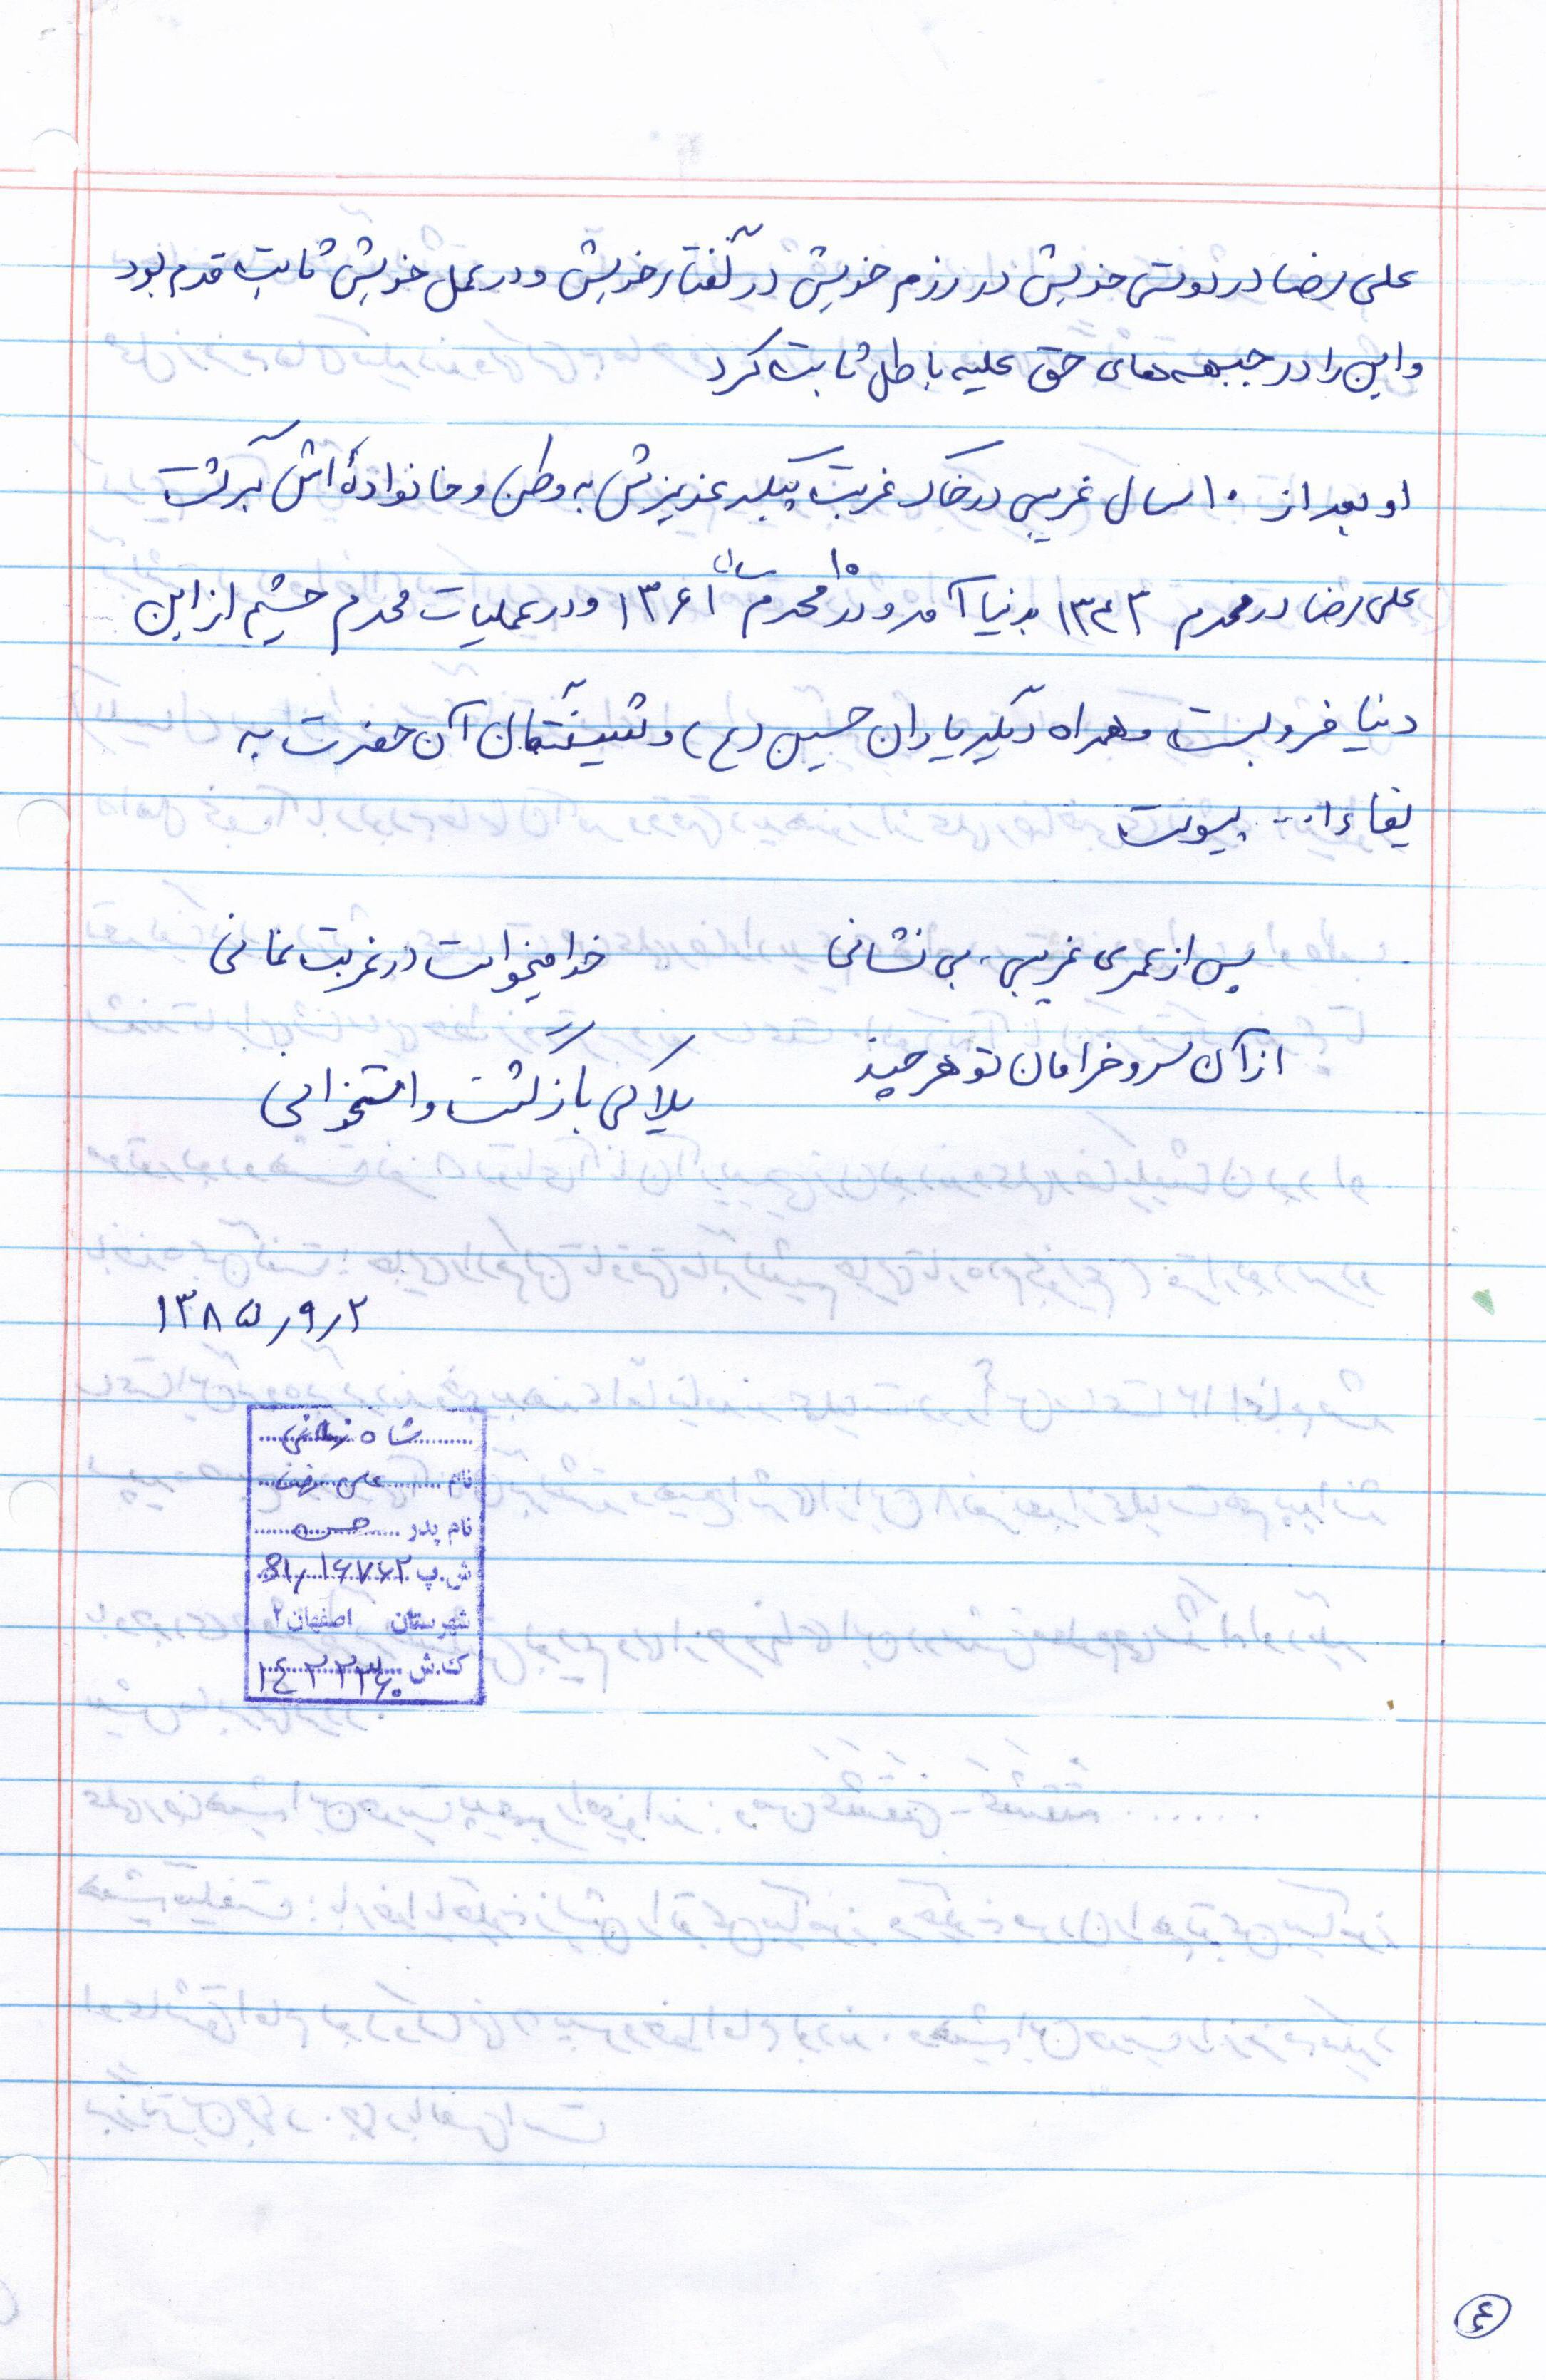 علی رضا در دوستی خویش در رزم خویش در گفتار خویش و در عمل خویش ثابت قدم بود
و این را در جبهه های حق علیه باطل ثابت کرد
او بعد از ۱۰ سال غریبی در خاک غربت پیکر عزیزش به وطن و خانوادهٔ اش برگشت
علی رضا در محرم ۱۳۴۳ بدنیا آمد و در ۱۵ محرم سال ۱۳۶۱ و در عملیات محرم چشم از این
دنیا فرو بست و همراه دیگر یاران حسین (ع) و شیفتگان آن حضرت به
لقاء ا... پیوست
پس از عمری غریبی، بی نشانی خدا میخواست در غربت نمانی
از آن سرو خرامان تو هر چند پلاکی بازگشت و استخوانی
۱۳۸۵٫۹٫۲
شاه زمانی
نام علی رضا
نام پدر حسن
ش.پ ۶۱٫۱۶۷۶۲
شهرستان اصفهان ۲
کد.ش ۱۴۲۲۲۶۰
۴